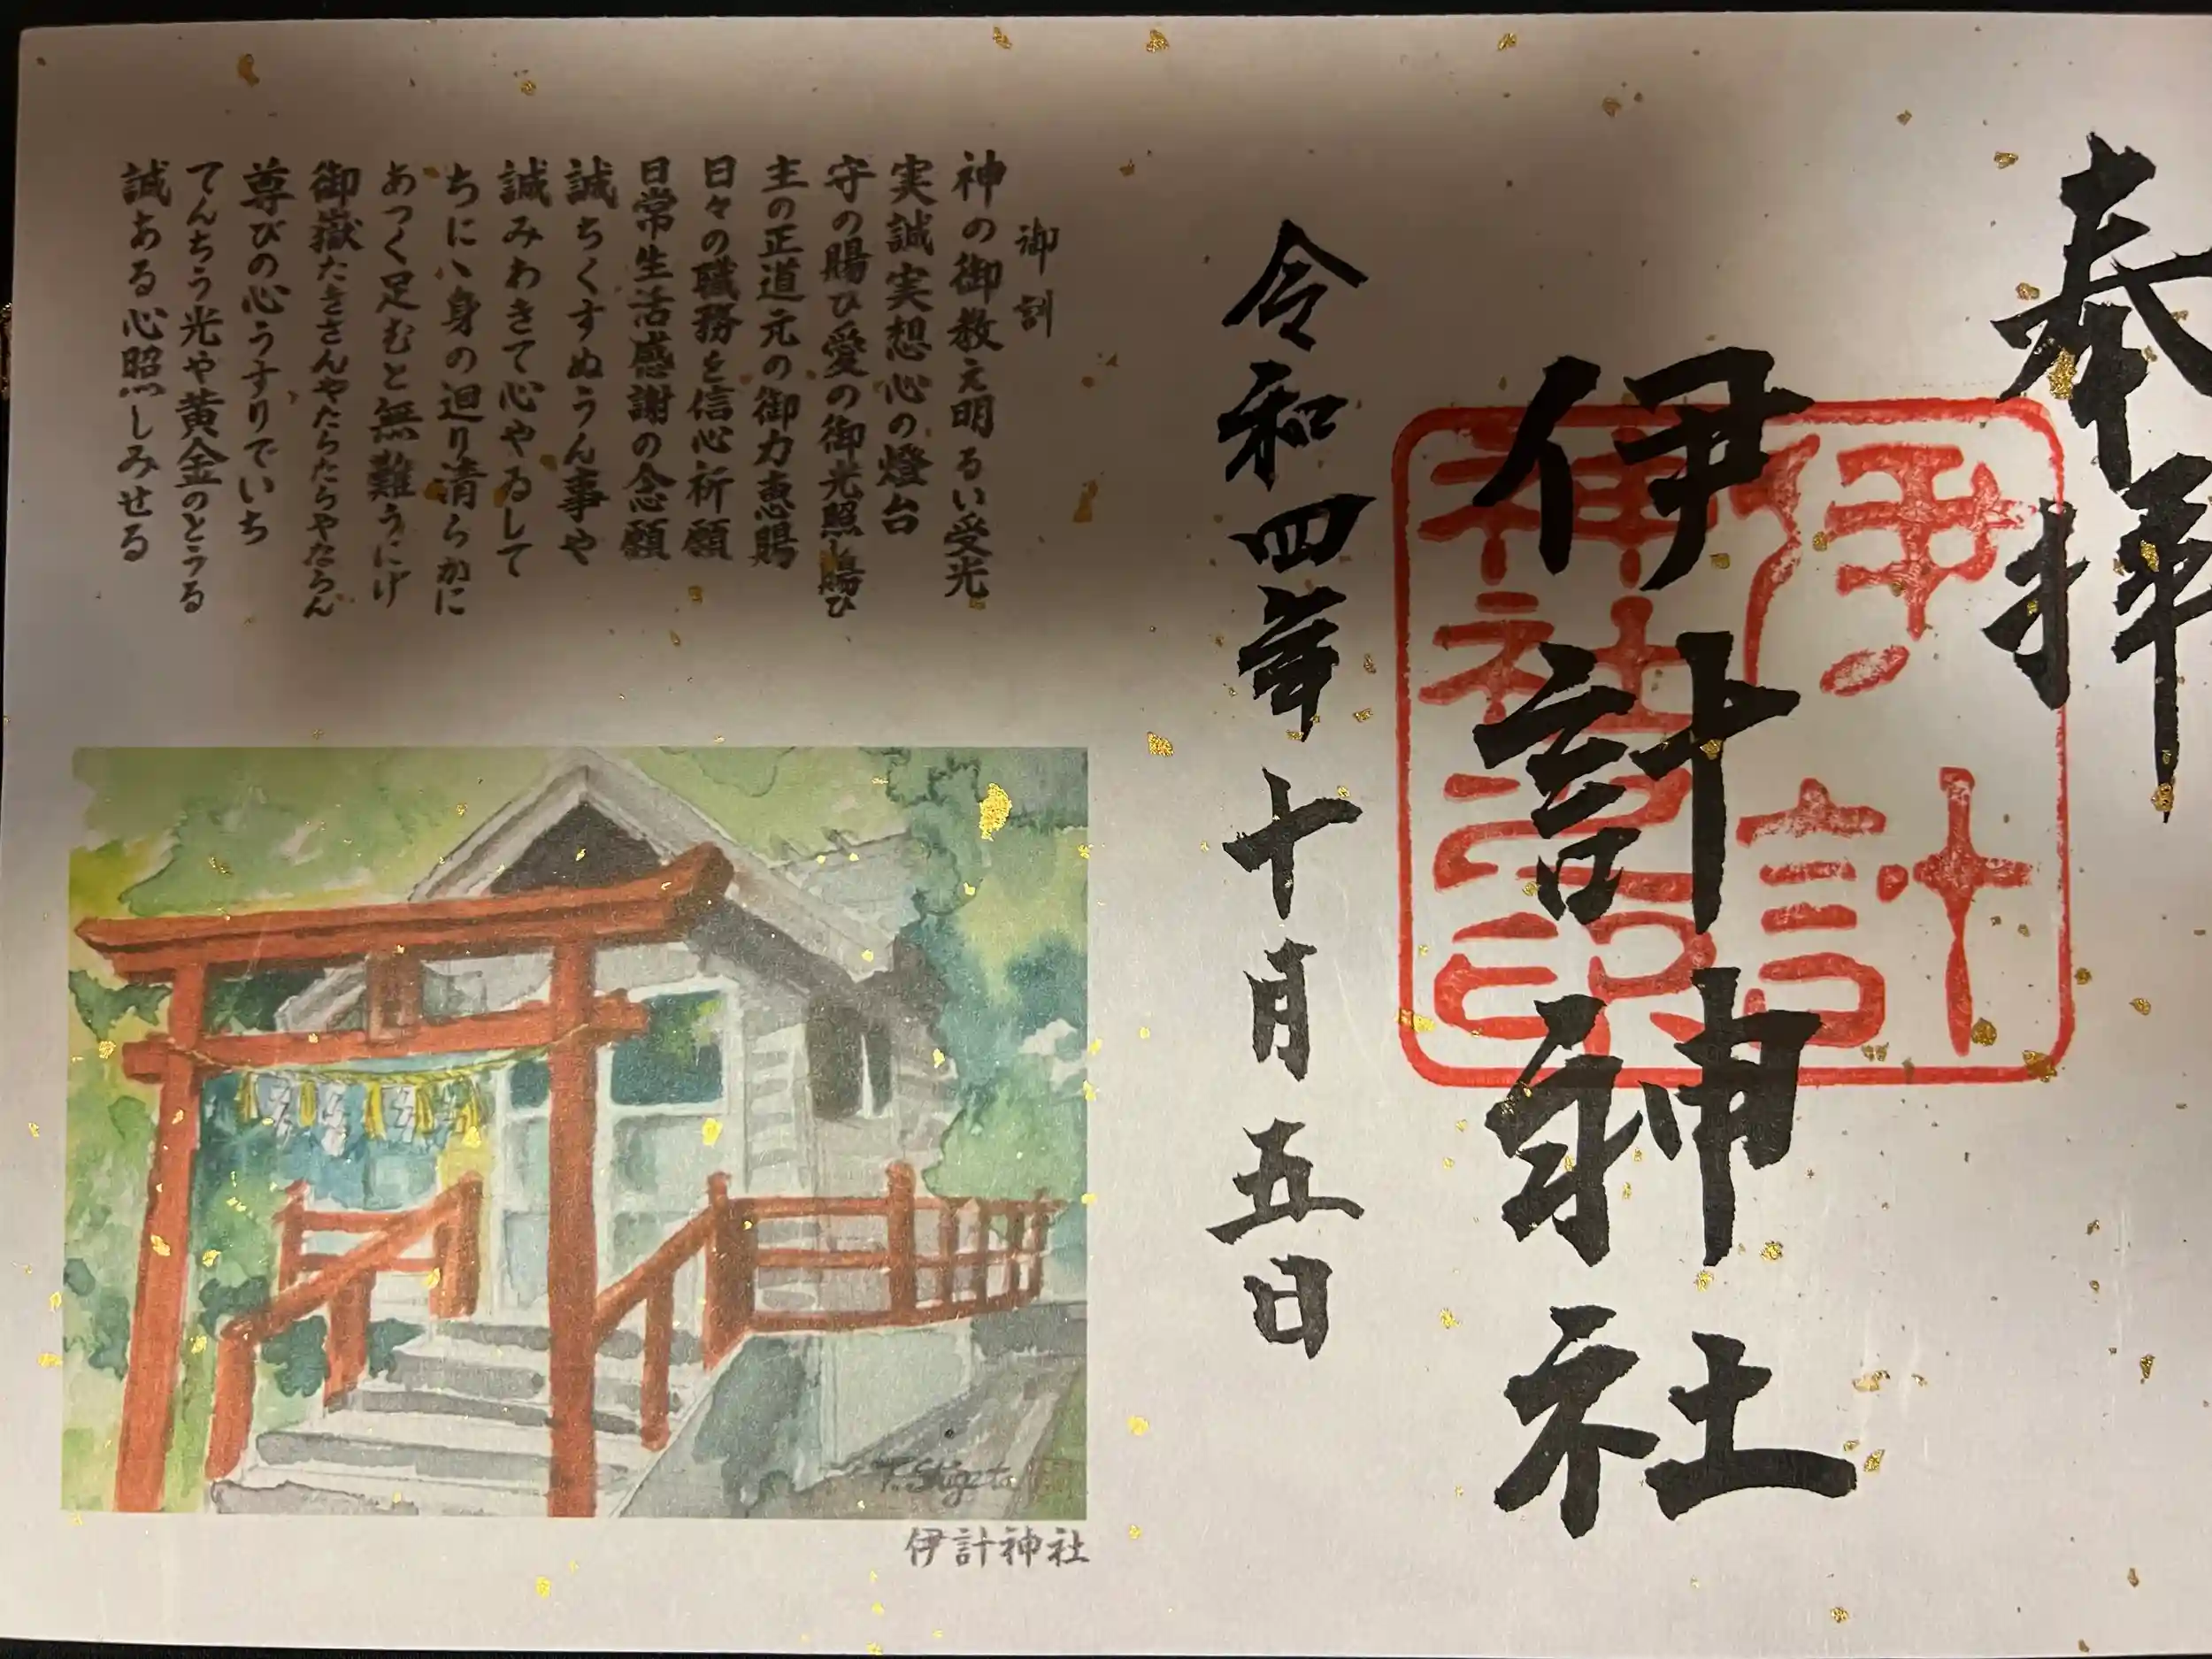 奉拝
伊計神社
伊計
神社之印
令和四年十月五日
御訓
神の御教え明るい受光
実誠実想心の燈台
守の賜ひ愛の御光照し賜ひ
主の正道元の御力恵賜
日々の職務を信心祈願
日常生活感謝の念願
誠ちくすぬうん事や
誠みわきて心やゐして
ちに八身の廻り清らかに
あつく足むと無難うにげ
御嶽たきさんやたらたらやならん
尊びの心うすりでいち
てんちう光や黄金のとうる
誠ある心照しみせる
T. Shigeta
伊計神社